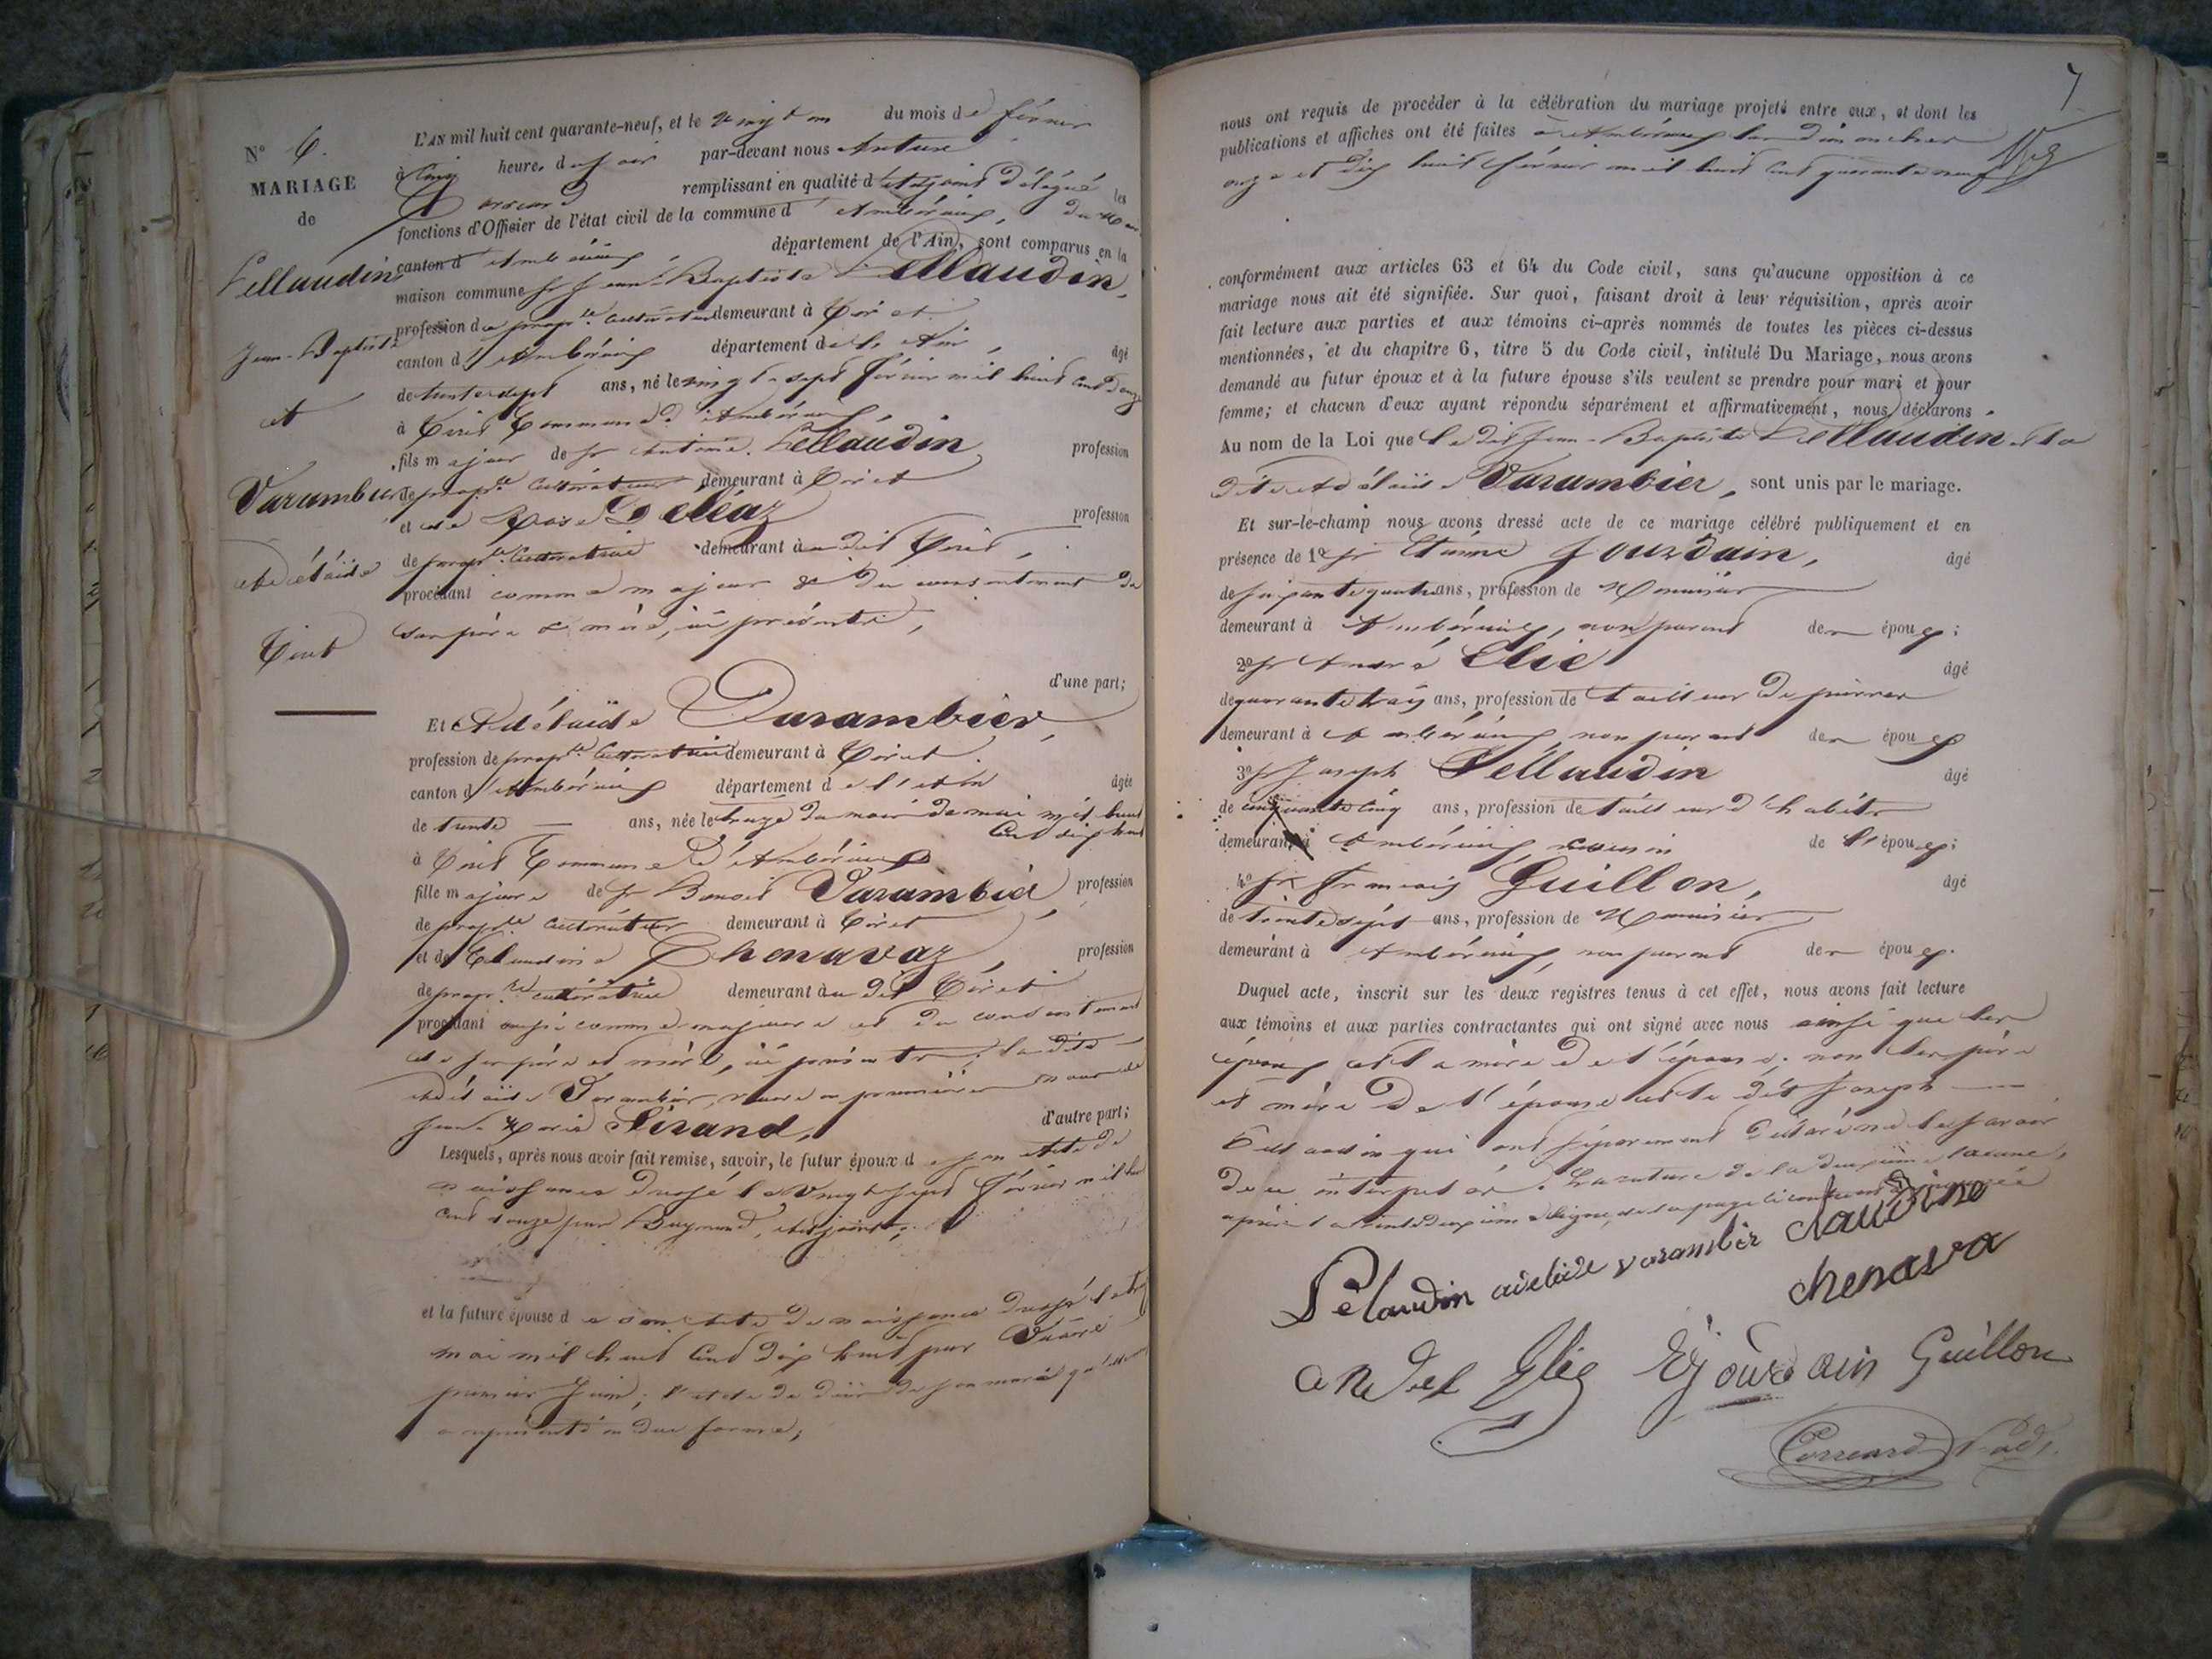 N° 6.
MARIAGE
de
Pellaudin
Jean-Baptiste
et
Varambier
Adélaïde
Tiret
L'AN mil huit cent quarante-neuf, et le vingt un du mois de février
à cinq heures du soir par-devant nous Anture
Correard remplissant en qualité d'Adjoint délégué du Maire les
fonctions d'Officier de l'état civil de la commune d'Ambérieux,
canton d'Ambérieux département de l'Ain, sont comparus en la
maison commune Sr Jean-Baptiste Pellaudin,
profession de propre cultivateur demeurant à Tiret
canton d'Ambérieux département de l'Ain, âgé
de trente sept ans, né le vingt sept février mil huit cent douze
à Tiret Commune d'Ambérieux,
fils majeur de Sr Antoine Pellaudin profession
de propre cultivateur demeurant à Tiret
et de Rose Deléaz profession
de propre cultivatrice demeurant audit Tiret,
procédant comme majeur & du consentement de
ses père & mère, ici présents,
d'une part;
Et Adélaïde Varambier,
profession de propre cultivatrice demeurant à Tiret
canton d'Ambérieux département de l'Ain âgée
de trente ans, née le treize du mois de mai mil huit
cent dix huit
à Tiret Commune d'Ambérieux
fille majeure de Sr Benoit Varambier profession
de propre cultivateur demeurant à Tiret
et de Claudine Chenavaz, profession
de propre cultivatrice demeurant audit Tiret
procédant aussi comme majeure et du consentement
de ses père et mère, ici présents; la dite
Adélaïde Varambier, veuve en premières noces de
Jean Marie Sirand, d'autre part;
Lesquels, après nous avoir fait remise, savoir, le futur époux de son acte de
naissance dressé le vingt sept février mil huit
cent douze par Baymond, adjoint;
et la future épouse de son acte de naissance dressé le
mai mil huit cent dix huit par
premier Juin; l'acte de décès de son mari qu'elle
a représenté en due forme;
7
nous ont requis de procéder à la célébration du mariage projeté entre eux, et dont les
publications et affiches ont été faites à Ambérieux les dimanches
onze et dix huit février mil huit cent quarante neuf
conformément aux articles 63 et 64 du Code civil, sans qu'aucune opposition à ce
mariage nous ait été signifiée. Sur quoi, faisant droit à leur réquisition, après avoir
fait lecture aux parties et aux témoins ci-après nommés de toutes les pièces ci-dessus
mentionnées, et du chapitre 6, titre 5 du Code civil, intitulé Du Mariage, nous avons
demandé au futur époux et à la future épouse s'ils veulent se prendre pour mari et pour
femme; et chacun d'eux ayant répondu séparément et affirmativement, nous déclarons
Au nom de la Loi que le dit Jean-Baptiste Pellaudin et la
dite Adélaïde Varambier, sont unis par le mariage.
Et sur-le-champ nous avons dressé acte de ce mariage célébré publiquement et en
présence de 1° Sr Etienne Jourdain, âgé
de soixante quatre ans, profession de Menuisier
demeurant à Ambérieux, non parent des époux;
2° Sr André Elie âgé
de quarante trois ans, profession de tailleur de pierres
demeurant à Ambérieux, non parent des époux
3° Sr Joseph Pellaudin âgé
de cinquante cinq ans, profession de tailleur d'habits
demeurant à Ambérieux, cousin de l'époux;
4° Sr François Guillon, âgé
de trente sept ans, profession de Menuisier
demeurant à Ambérieux, non parent des époux.
Duquel acte, inscrit sur les deux registres tenus à cet effet, nous avons fait lecture
aux témoins et aux parties contractantes qui ont signé avec nous ainsi que les
époux et la mère de l'épouse; non les père
et mère de l'époux et le dit Joseph
Pellaudin qui ont séparément déclaré ne le savoir
de ce interpellés. La rature de la deuxième lacune,
après la trente deuxième ligne, de la page ci contre
Pèlaudin adelaide varambier claudine
chenava
andré Elie Ejourdain Guillon
Correard adj.